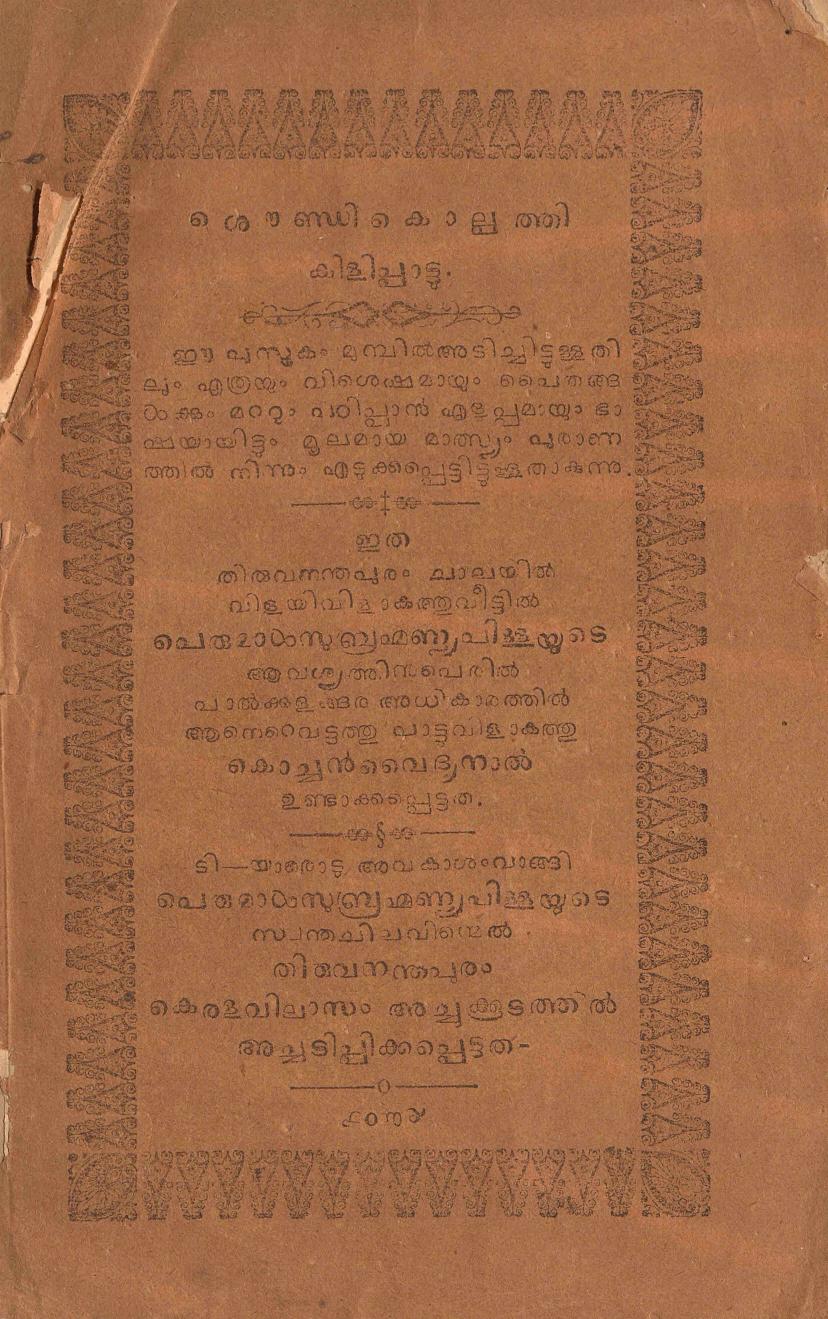 ശൌണ്ഡികൊല്പത്തി
കിളിപ്പാട്ടു.
ഈ പുസ്തകം മുമ്പിൽഅടിച്ചിട്ടുള്ളതി
ലും എത്രയും വിശെഷമായും പൈതങ്ങ
ൾക്കും മററും പഠിപ്പാൻ എളുപ്പമായും ഭാ
ഷയായിട്ടും മൂലമായ മാത്സ്യം പുരാണ
ത്തിൽ നിന്നും എടുക്കപ്പെട്ടിട്ടുള്ളതാകുന്നു.
ഇത
തിരുവനന്തപുരം ചാലയിൽ
വിളയിവിളാകത്തുവീട്ടിൽ
പെരുമാൾസുബ്രഹ്മണ്യപിള്ളയുടെ
ആവശ്യത്തിന്പെരിൽ
പാൽക്കുളങ്ങര അധികാരത്തിൽ
ആനെറെവട്ടത്തു പാട്ടവിളാകത്തു
കൊച്ചൻവൈദ്യനാൽ
ഉണ്ടാക്കപ്പെട്ടത.
ടി—യാരൊടു അവകാശംവാങ്ങി
പെരുമാൾസുബ്രഹ്മണ്യപിള്ളയുടെ
സ്വന്തചിലവിന്മെൽ
തിരുവനന്തപുരം
കെരളവിലാസം അച്ചുക്കൂടത്തിൽ
അച്ചടിപ്പിക്കപ്പെട്ടത-